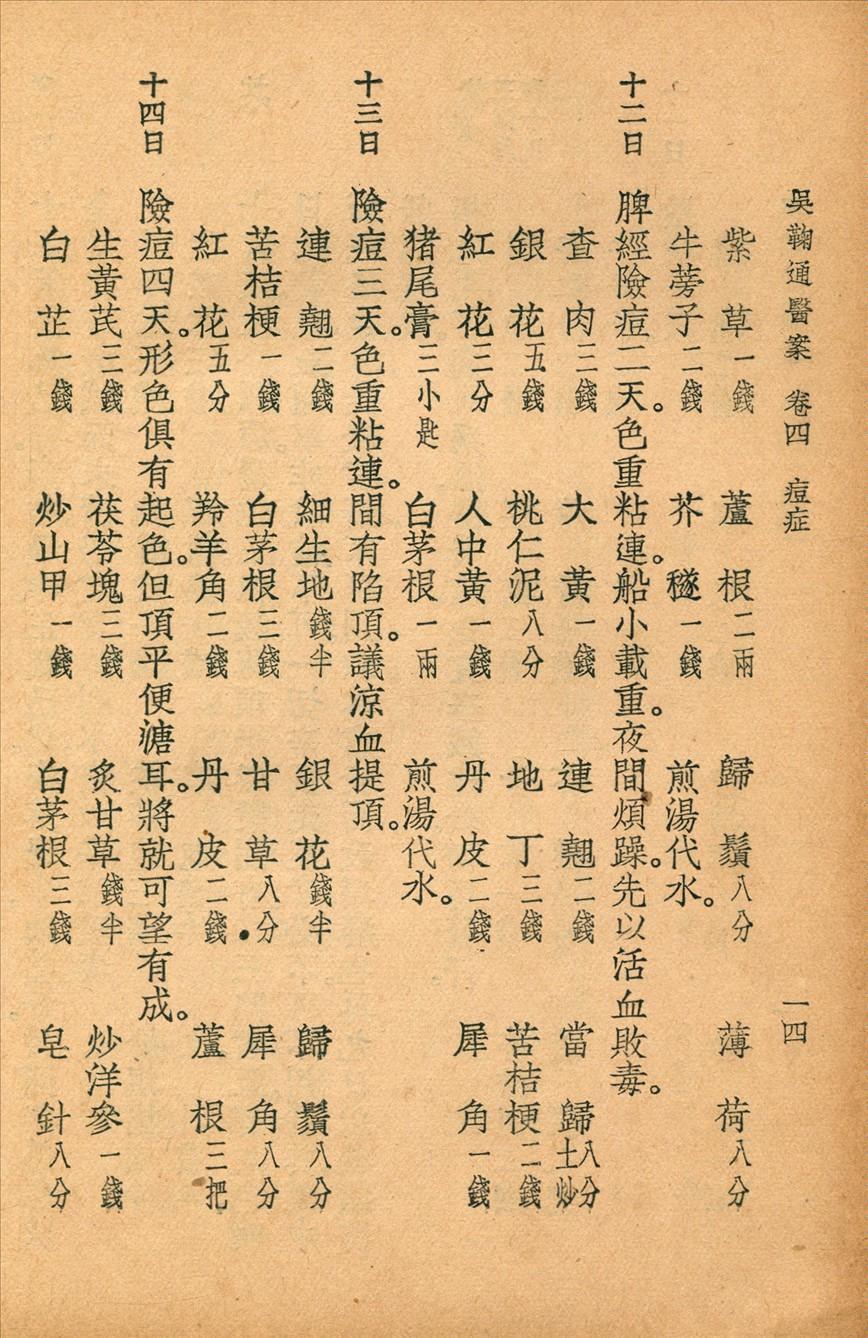 吳鞠通醫案　卷四　痘症　一四
紫草一錢　蘆根二兩　歸鬚八分　薄荷八分
牛蒡子二錢　芥穟一錢　煎湯代水。
十二日　脾經險痘二天。色重粘連。船小載重。夜間煩躁。先以活血敗毒。
查肉三錢　大黃一錢　連翹二錢　當歸八分土炒
銀花五錢　桃仁泥八分　地丁三錢　苦桔梗二錢
紅花三分　人中黃一錢　丹皮二錢　犀角一錢
猪尾膏三小匙　白茅根一兩　煎湯代水。
十三日　險痘三天。色重粘連。間有陷頂。議涼血提頂。
連翹二錢　細生地錢半　銀花錢半　歸鬚八分
苦桔梗一錢　白茅根三錢　甘草八分　犀角八分
紅花五分　羚羊角二錢　丹皮二錢　蘆根三把
十四日　險痘四天。形色俱有起色。但頂平便溏耳。將就可望有成。
生黃芪三錢　茯苓塊三錢　炙甘草錢半　炒洋參一錢
白芷一錢　炒山甲一錢　白茅根三錢　皂針八分